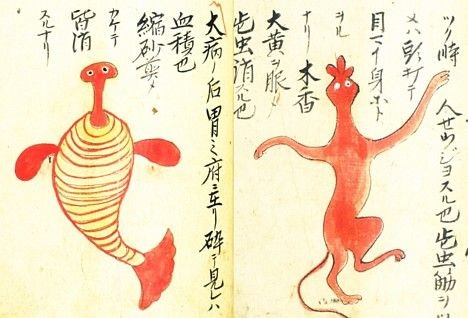 ツク時
人セウジヨスル也此虫筋ヲツ
メハ
目マイ身ホト
ヲル
ナリ 木香
大黄ヲ服ハ
此虫消スル也
大病ノ后胃ノ府ニ在リ砕テ見レハ
血積也
縮砂
カケテ
皆消
スルナリ